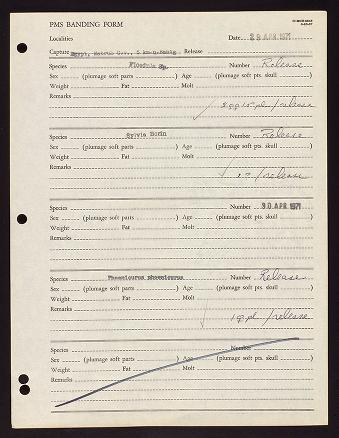 PMS BANDING FORM
Localities Date 29 APR. 1971
Capture Egypt, Matruh Gov., 5 km Release
Species Number Release
Sex (plumage soft parts ) Age (plumage soft pts. skull )
Weight Fat Molt
Remarks
/release
Species Sylvia Borin Number Release
Sex (plumage soft parts ) Age (plumage soft pts. skull )
Weight Fat Molt
Remarks
/release
Species Number 30 APR. 1971
Sex (plumage soft parts ) Age (plumage soft pts. skull )
Weight Fat Molt
Remarks
Species Phoenicurus phoenicurus Number Release
Sex (plumage soft parts ) Age (plumage soft pts. skull )
Weight Fat Molt
Remarks
/release
Species Number
Sex (plumage soft parts ) Age (plumage soft pts. skull )
Weight Fat Molt
Remarks